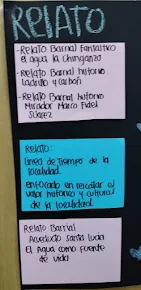 RELATO
-Relato Barrial fantastico
el agua la chinganza
-Relato Barrial historico
ladrillo y carbon
-Relato Barrial historico
Mirador Marco Fidel
Suarez
Relato:
linea de tiempo de la
localidad.
enfocado en rescatar el
valor historico y cultural
de la localidad.
Relato Barrial
Acueducto santa lucia
El Agua como fuente
de vida